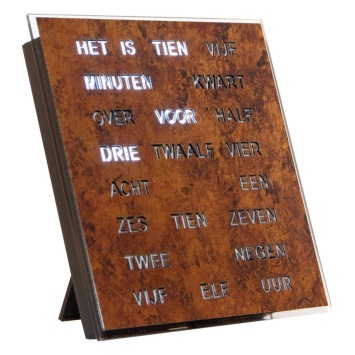 HET IS TIEN VIJF
MINUTEN KWART
OVER VOOR HALF
DRIE TWAALF VIER
ACHT EEN
ZES TIEN ZEVEN
TWEE NEGEN
VIJF ELF UUR